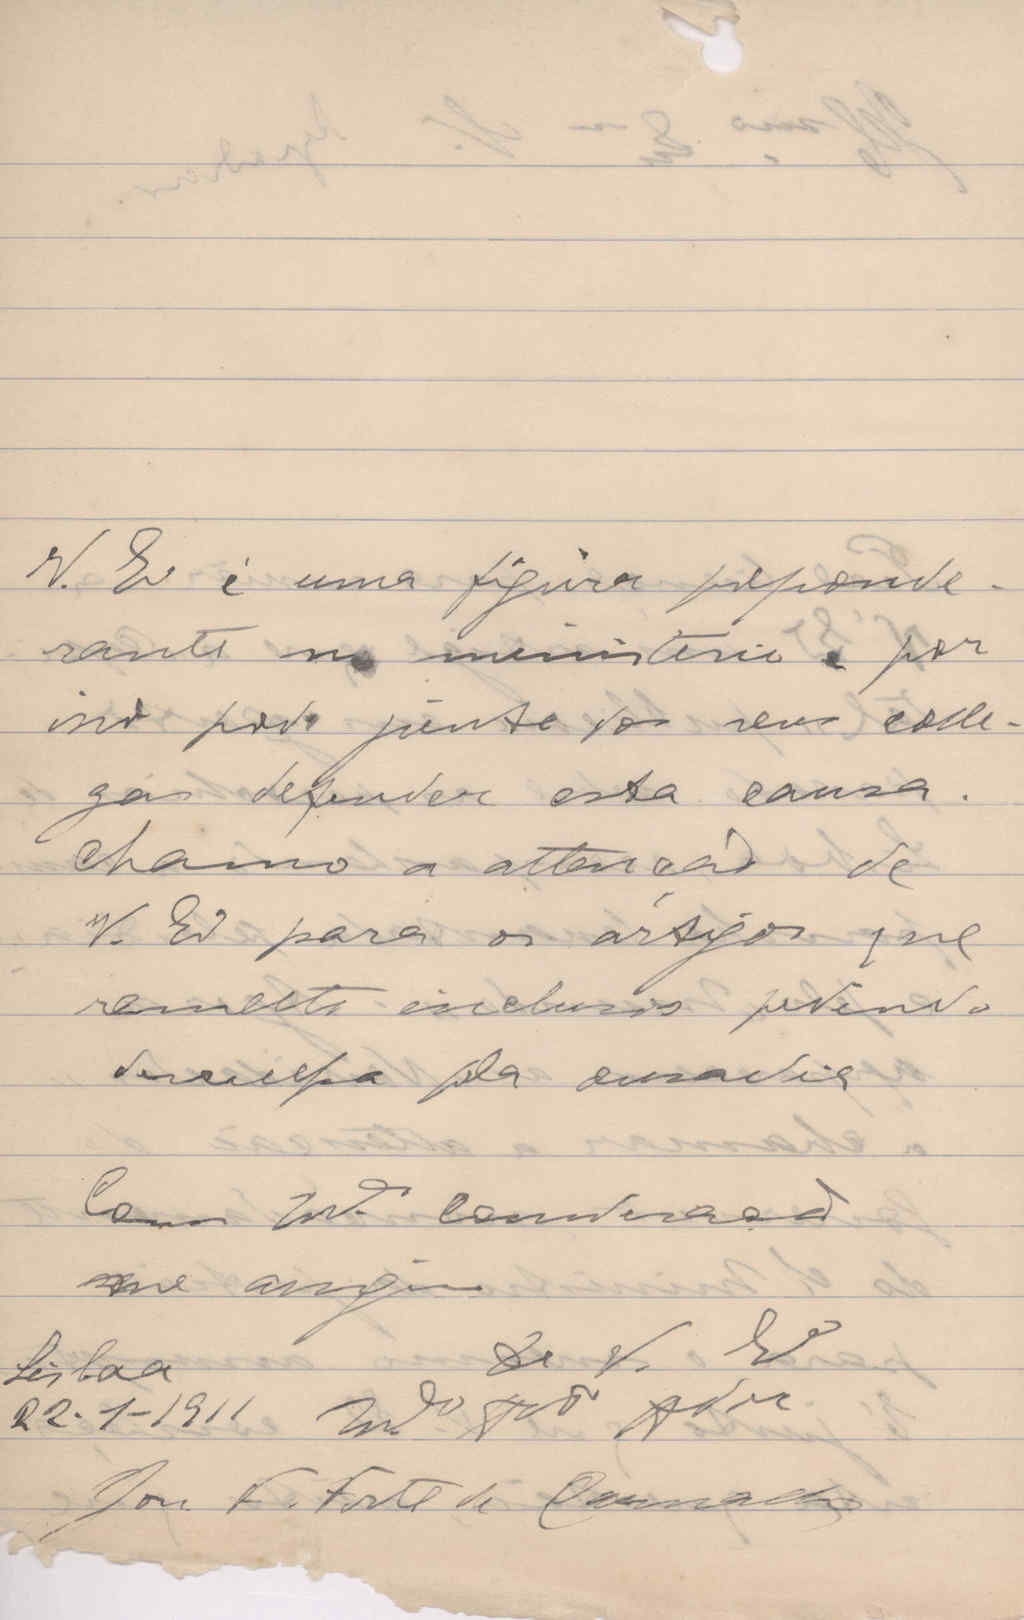 V. Exª é uma figura preponde-
rante no ministerio e por
isso pode junto dos seus colle-
gas defender esta causa.
Chamo a attenção de
V. Exª para os artigos que
remetto inclusos pedindo
desculpa pla ousadia
Com mtª consideração
me assigno
De V. Exª
Lisboa
22-1-1911 Mtº Attº Adºr
José F. Forte de